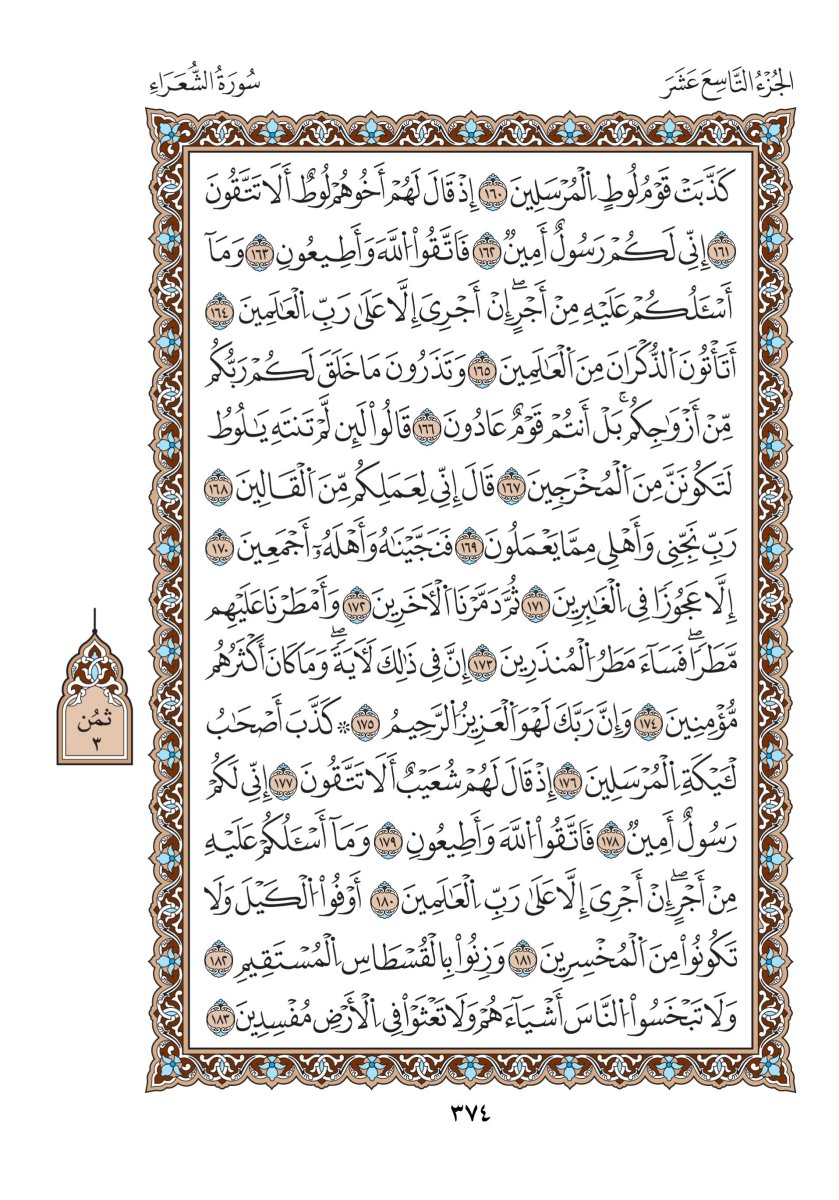 الجُزْءُ التَّاسِعَ عَشَرَ
سُورَةُ الشُّعَرَاءِ
كَذَّبَتْ قَوْمُ لُوطٍ اِلْمُرْسَلِينَ ١٦٠ إِذْ قَالَ لَهُمْ أَخُوهُمْ لُوطٌ أَلَا تَتَّقُونَ
١٦١ إِنِّي لَكُمْ رَسُولٌ أَمِينٌ ١٦٢ فَاَتَّقُواْ اُللَّهَ وَأَطِيعُونِ ١٦٣ وَمَآ
أَسْـَٔلُكُمْ عَلَيْهِ مِنْ أَجْرٍۖ إِنْ أَجْرِيَ إِلَّا عَلَىٰ رَبِّ اِلْعَٰلَمِينَ ١٦٤
أَتَأْتُونَ اَلذُّكْرَانَ مِنَ اَلْعَٰلَمِينَ ١٦٥ وَتَذَرُونَ مَا خَلَقَ لَكُمْ رَبُّكُم
مِّنْ أَزْوَٰجِكُمۚ بَلْ أَنتُمْ قَوْمٌ عَادُونَ ١٦٦ قَالُواْ لَئِن لَّمْ تَنتَهِ يَٰلُوطُ
لَتَكُونَنَّ مِنَ اَلْمُخْرَجِينَ ١٦٧ قَالَ إِنِّي لِعَمَلِكُم مِّنَ اَلْقَالِينَ ١٦٨
رَبِّ نَجِّنِي وَأَهْلِي مِمَّا يَعْمَلُونَ ١٦٩ فَنَجَّيْنَٰهُ وَأَهْلَهُۥٓ أَجْمَعِينَ ١٧٠
إِلَّا عَجُوزٗا فِي اِلْغَٰبِرِينَ ١٧١ ثُمَّ دَمَّرْنَا اَلْأٓخَرِينَ ١٧٢ وَأَمْطَرْنَا عَلَيْهِم
مَّطَرٗاۖ فَسَآءَ مَطَرُ اُلْمُنذَرِينَ ١٧٣ إِنَّ فِي ذَٰلِكَ لَأٓيَةٗۖ وَمَا كَانَ أَكْثَرُهُم
مُّؤْمِنِينَ ١٧٤ وَإِنَّ رَبَّكَ لَهْوَ اَلْعَزِيزُ اُلرَّحِيمُ ١٧٥ * كَذَّبَ أَصْحَٰبُ
لَـْٔيْكَةَ اَلْمُرْسَلِينَ ١٧٦ إِذْ قَالَ لَهُمْ شُعَيْبٌ أَلَا تَتَّقُونَ ١٧٧ إِنِّي لَكُمْ
رَسُولٌ أَمِينٌ ١٧٨ فَاَتَّقُواْ اُللَّهَ وَأَطِيعُونِ ١٧٩ وَمَآ أَسْـَٔلُكُمْ عَلَيْهِ
مِنْ أَجْرٍۖ إِنْ أَجْرِيَ إِلَّا عَلَىٰ رَبِّ اِلْعَٰلَمِينَ ١٨٠ أَوْفُواْ اُلْكَيْلَ وَلَا
تَكُونُواْ مِنَ اَلْمُخْسِرِينَ ١٨١ وَزِنُواْ بِالْقُسْطَاسِ اِلْمُسْتَقِيمِ ١٨٢
وَلَا تَبْخَسُواْ اُلنَّاسَ أَشْيَآءَهُمْ وَلَا تَعْثَوْاْ فِي اِلْأَرْضِ مُفْسِدِينَ ١٨٣
ثُمُن
٣
٣٧٤